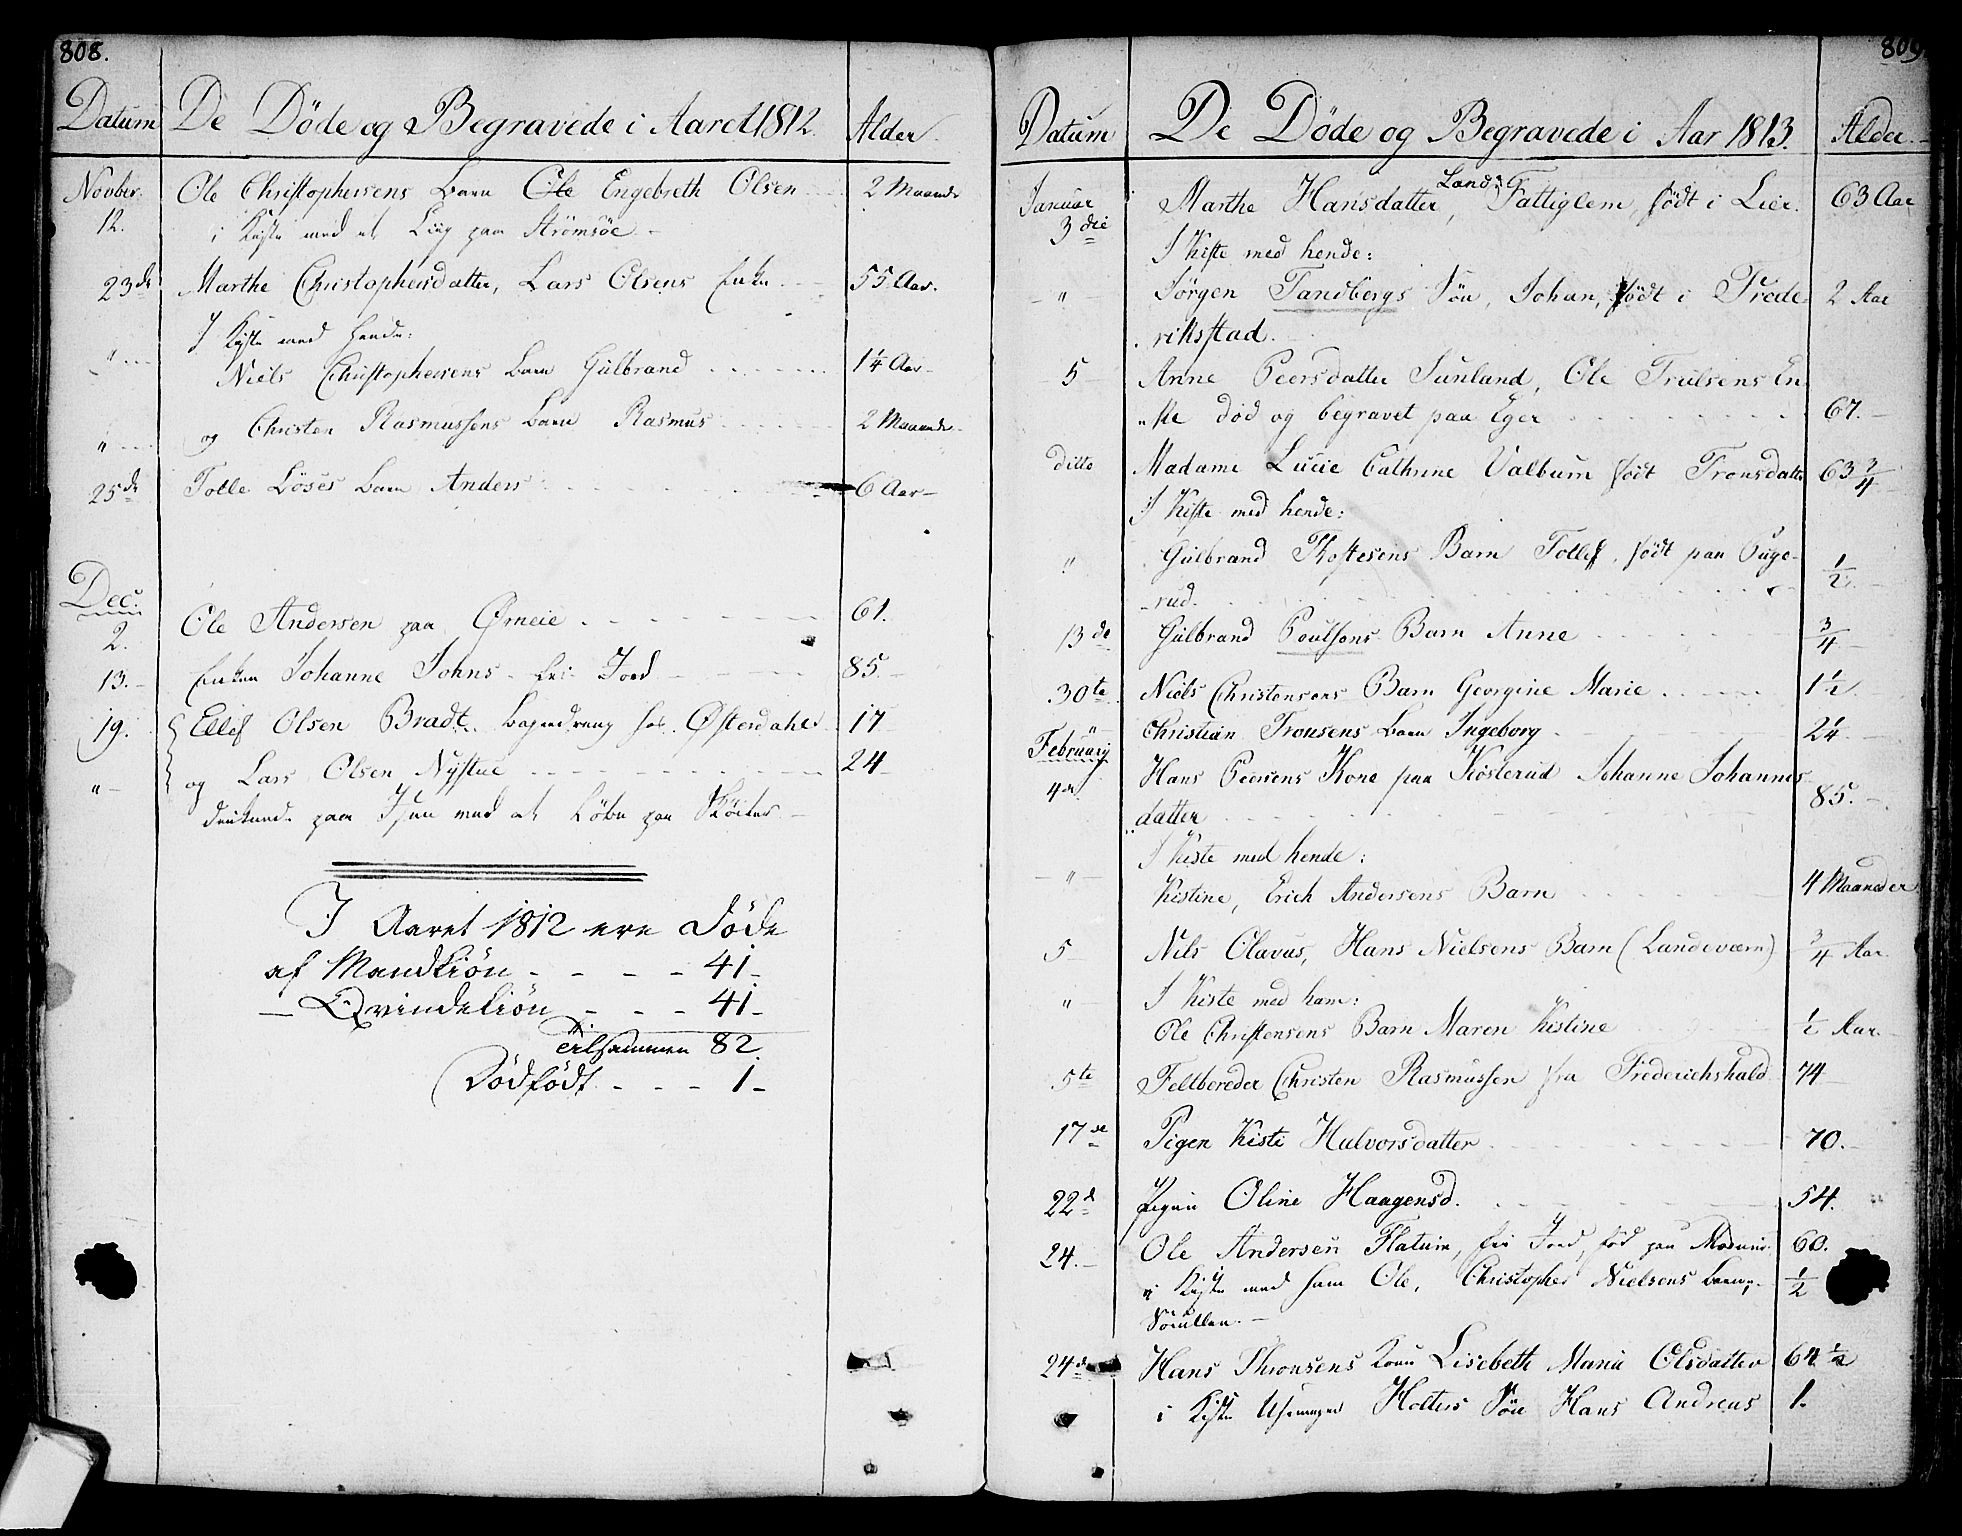 808.
Datum De Döde og Begravede i Aaret 1812. Alder.
Novber. Ole Christophersens barn Ole Engebreth Olsen 2 Maaneder
12. i Kiste med et Liig paa Strömsöe
23de Marthe Christophersdatter, Lars Olsens Enke 55 Aar.
I Kiste med hende:
" Niels Christophersens barn Gulbrand 1¼ Aar
" og Christen Rasmussens barn Rasmus 2 Maaneder
25de Tolle Löses barn Anders 6 Aar
Dec.
2. Ole Andersen paa Ørneie 61.
13. Enken Johanne Johns 85.
19. Ellef Olsen Bradt Bagerdreng hos Østerdahl 17
" og Lars Olsen Nystue 24
paa Isen med at Löbe paa Sköiter.
I Aaret 1812 ere Döde
af Mandkiön - - - - 41
— Qvindekiön - - - 41
tilsammen 82.
Dödfödt - - - 1
809
Datum De Döde og Begravede i Aar 1813. Alder.
Januar Marthe Hansdatter, Lands Fattiglem, födt i Lier. 63 Aar
3die I Kiste med hende:
" Jörgen Tandbergs Sön, Johan, födt i Frede 2 Aar
rikstad.
5 Anne Peersdatter Sunland, Ole Trulsens En
"ke död og begravet paa Eger 67.
ditto Madame Lucie Cathrine Valbum födt Tronsdatter 63 ¾
I Kiste med hende:
" Gulbrand Thostesens Barn Tollef, födt paa Ouge ½.
rud.
13de Gulbrand Poulsons Barn Anne ¾
30te Niels Christensens Barn Georgine Marie 1½.
" Christian Tronsens barn Ingeborg 2¼
February Hans Peersens Kone paa Kiösterud Johanne Johannes
4de datter 85.
I Kiste med hende:
" Kistine, Erich Andersens Barn 4 Maaneder
5 Nils Olavus, Hans Nielsens Barn (Landeværn) ¾ Aar
" I Kiste med ham:
Ole Christensens Barn Maren Kistine ½ Aar
5te Feltbereder Christen Rasmussen fra Friderichshald 74
17de Pigen Kisti Halvorsdatter 70.
22d Pigen Oline Haagensd. 54.
24. Ole Andersen Flatum, fri Jord, föd paa Modum 60.
i Kiste med ham Ole, Christopher Nielsens barn, ½
24de Hans Thronsens Kone Lisebeth Maria Olsdatter 64 ½
i Kiste Holters Sön Hans Andreas 1.